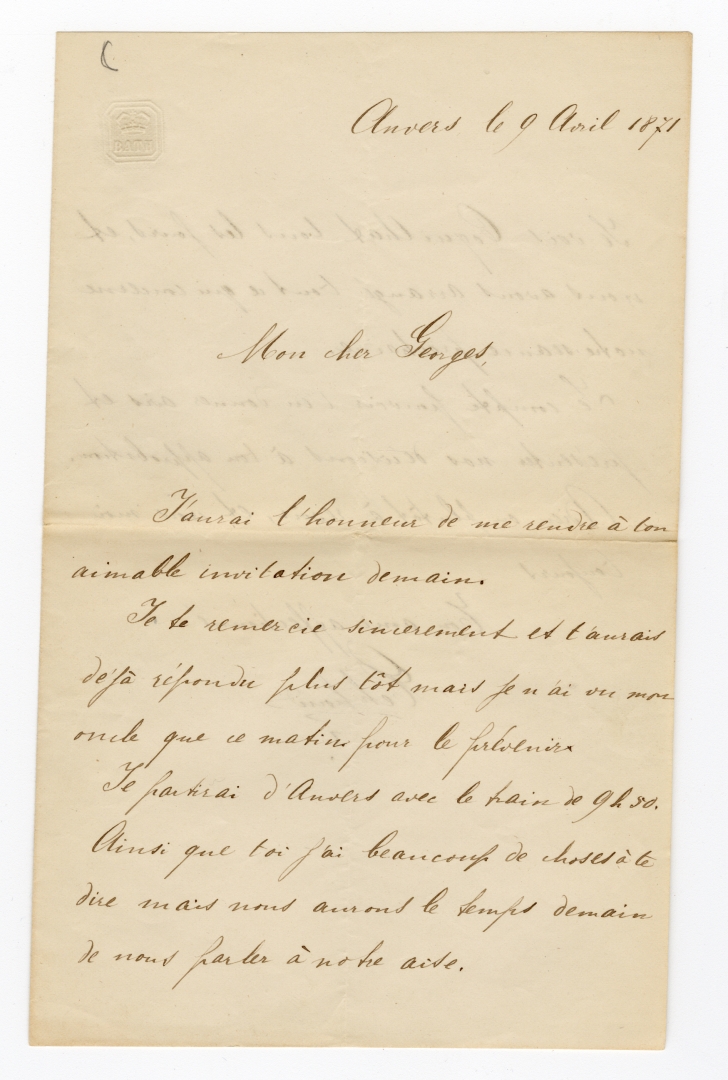 BATH
Anvers le 9 Avril 1871
Mon cher Georges,
J'aurai l'honneur de me rendre à ton
aimable invitation demain.
Je te remercie sincerement et t'aurais
déjà répondu plus tôt mais je n'ai vu mon
oncle que ce matin pour le prévenir.
Je partirai d'Anvers avec le train de 9h50.
Ainsi que toi j'ai beaucoup de choses à te
dire mais nous aurons le temps demain
de nous parler à notre aise.